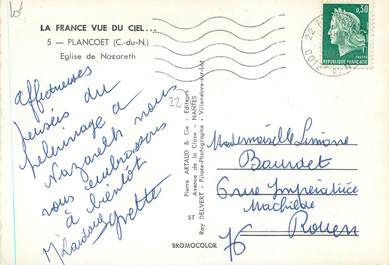 LA FRANCE VUE DU CIEL...
5 — PLANCOET (C.-du-N.)
Eglise de Nazareth
Affectueuses
pensées du
pélerinage à
Nazareth nous
vous embrassons
à bientôt
Yvette
22
Pierre ARTAUD & Cie - Editeurs
Avenue de la Close - NANTES
Ray DELVERT - Pilote-Photographe - Villeneuve-sur-Lot
ST
BROMOCOLOR
0,50
REPUBLIQUE FRANÇAISE
22
Mademoiselle Simone
Baudet
6 rue Impératrice
Mathilde
76 Rouen